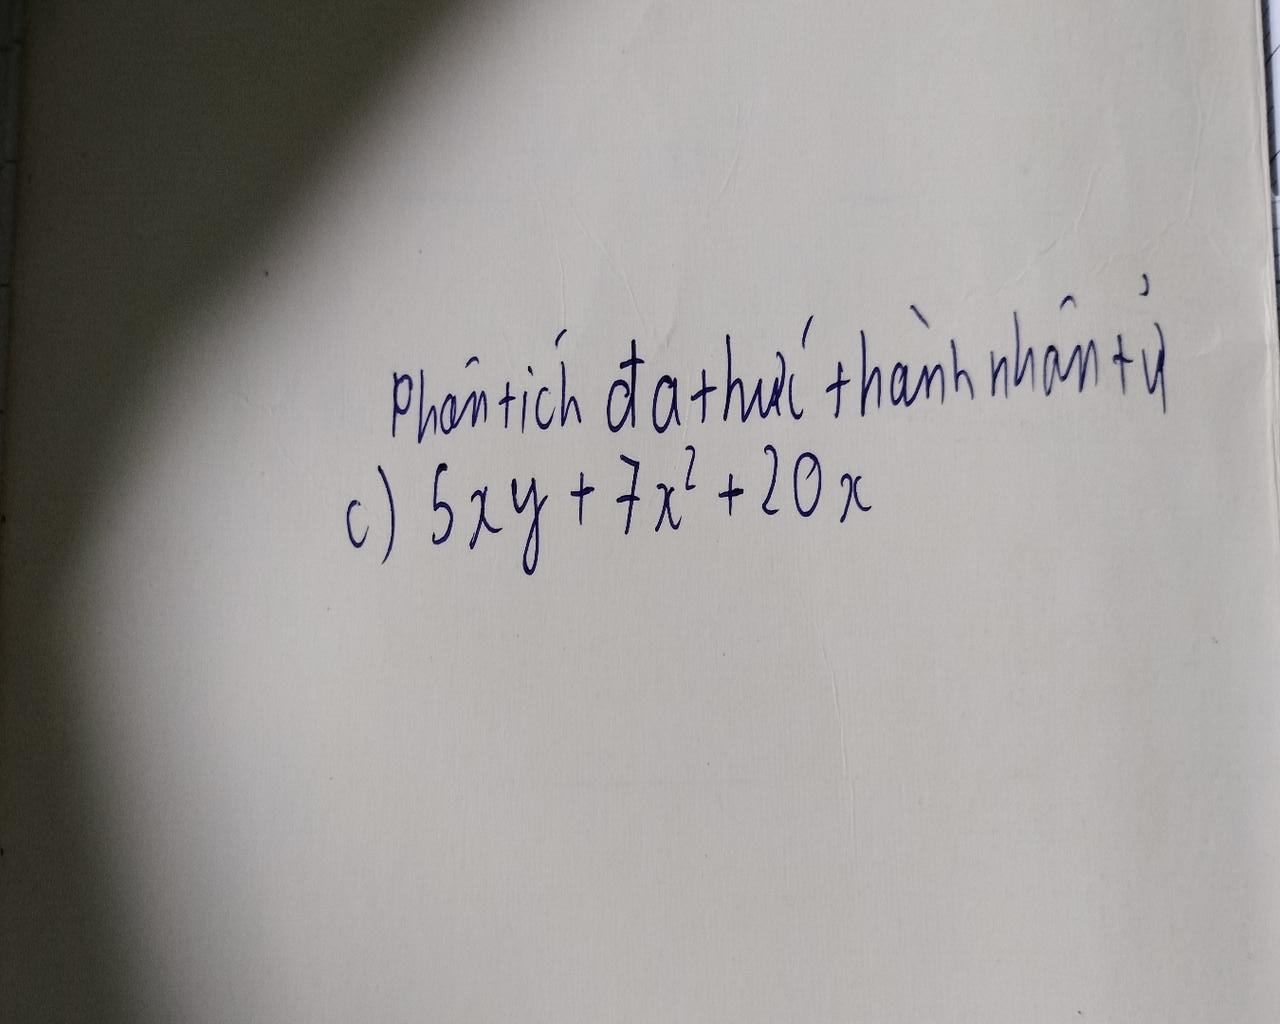 Phân tích đa thức thành nhân tử
c) 5xy + 7x² + 20x